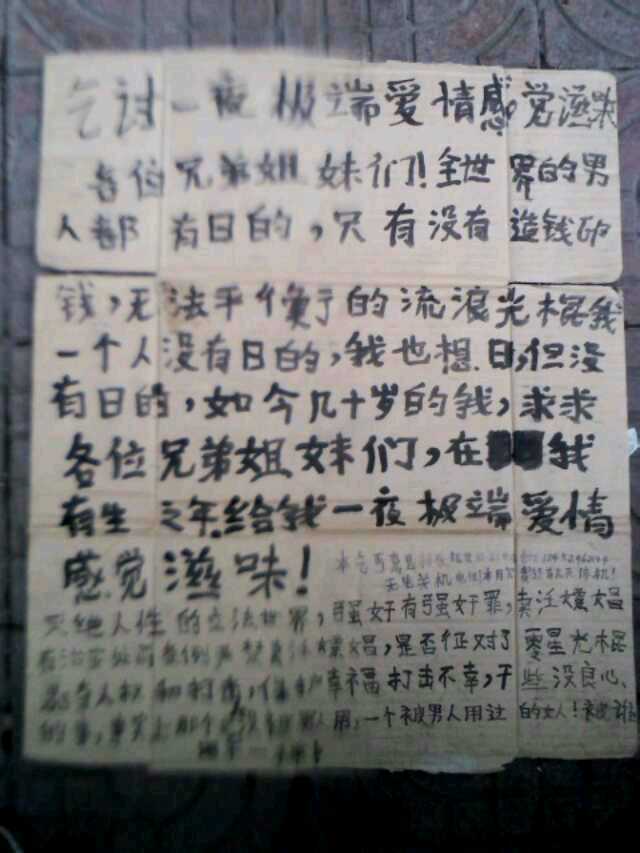 乞讨一夜极端爱情感觉滋味
各位兄弟姐妹们!全世界的男
人都有日的,只有没有造钱印
钱,无法平衡于的流浪光棍我
一个人没有日的,我也想日,但没
有日的,如今几十岁的我,求求
各位兄弟姐妹们,在我
有生之年给我一夜极端爱情
感觉滋味!
无电关机
灭绝人性的立法世界,强奸有强奸罪,卖淫嫖娼
有治安处罚条例严禁卖淫嫖娼,是否征对了零星光棍
人权和打击,幸福打击不幸,干些没良心
的事,一个被男人用过的女人!被